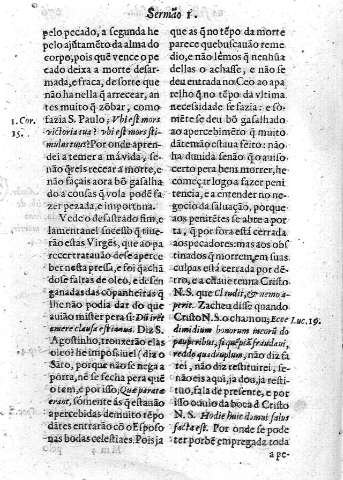 Sermão 1.
pelo pecado, a segunda he
pelo ajũtamẽto da alma do
corpo, pois quẽ vence o pe
cado deixa a morte desar-
mada, e fraca, de sorte que
não ha nella q̃ arrecear, an
tes muito q̃ zõbar, como
fazia S. Paulo; Vbi est mors
victoria tua? vbi est mors sti-
mulus tuus? Por onde apren-
dei a temer a má vida, se-
não q̃reis recear a morte, e
não façais aora bõ gasalha
do a cousas q̃ vola podẽ fa
zer pezada, e importuna.
Vede o desastrado fim, e
lamentauel sucesso q̃ tiue-
rão estas Virgẽs, que ao pa
recer tratauão de se aperce
ber nesta pressa, e foi q̃ achã
do se faltas de oleo, e desen
ganadas das cõpanheiras q̃
lhe não podia dar do que
auião mister pera si:
emere clausa est ianua. Diz S.
Agostinho, trouxerão elas
oleo? he impossiuel (diz o
Sãto, porque não se nega a
porta, nẽ se fecha pera quẽ
o tem, e por isso, Quæ paratæ
erant, sómente ás q̃ estauão
apercebidas de muito tẽpo
dátes entrarão cõ o Esposo
nas bodas celestiaes. Pois ja
1. Cor.
15.
que as q̃ no tẽpo da morte
parece que buscauão reme
dio, e não lẽmos q̃ nenhũa
dellas o achasse, e não se
deu entrada no Ceo ao apa
relho q̃ no tẽpo da vltima
necessidade se fazia: e só-
mẽte se deu bõ gasalhado
ao apercebimẽto q̃ muito
dátemão estaua feito: não
ha duuida senão q̃ o mais o
certo pera bem morrer, he
começar logo a fazer peni
tencia, e a entender no ne-
gocio da saluação, porque
aos penitẽtes se abre a por
ta, q̃ por fóra está cerrada
aos pecadores: mas aos obs
tinados q̃ morrem, em suas
culpas está cerrada por dẽ-
tro, e a chaue tem a Cristo
N. S. que Claudit, & nemo a-
perit. Zacheu disse quando
Cristo N.S. o chamou; Ecce
dimidium bonorum meorũ do
pauperibus, si quẽpiã fraudaui,
reddo quadruplum, não diz fa
rei, não diz restituirei, se-
não eis aqui, ja dou, ja resti-
tuo, fala de presente, e por
isso ouuio da boca d Cristo
N. S. Hodie huic domui salus
facta est. Por onde se pode
ter por bẽ empregada toda
Luc. 19.
a pe-